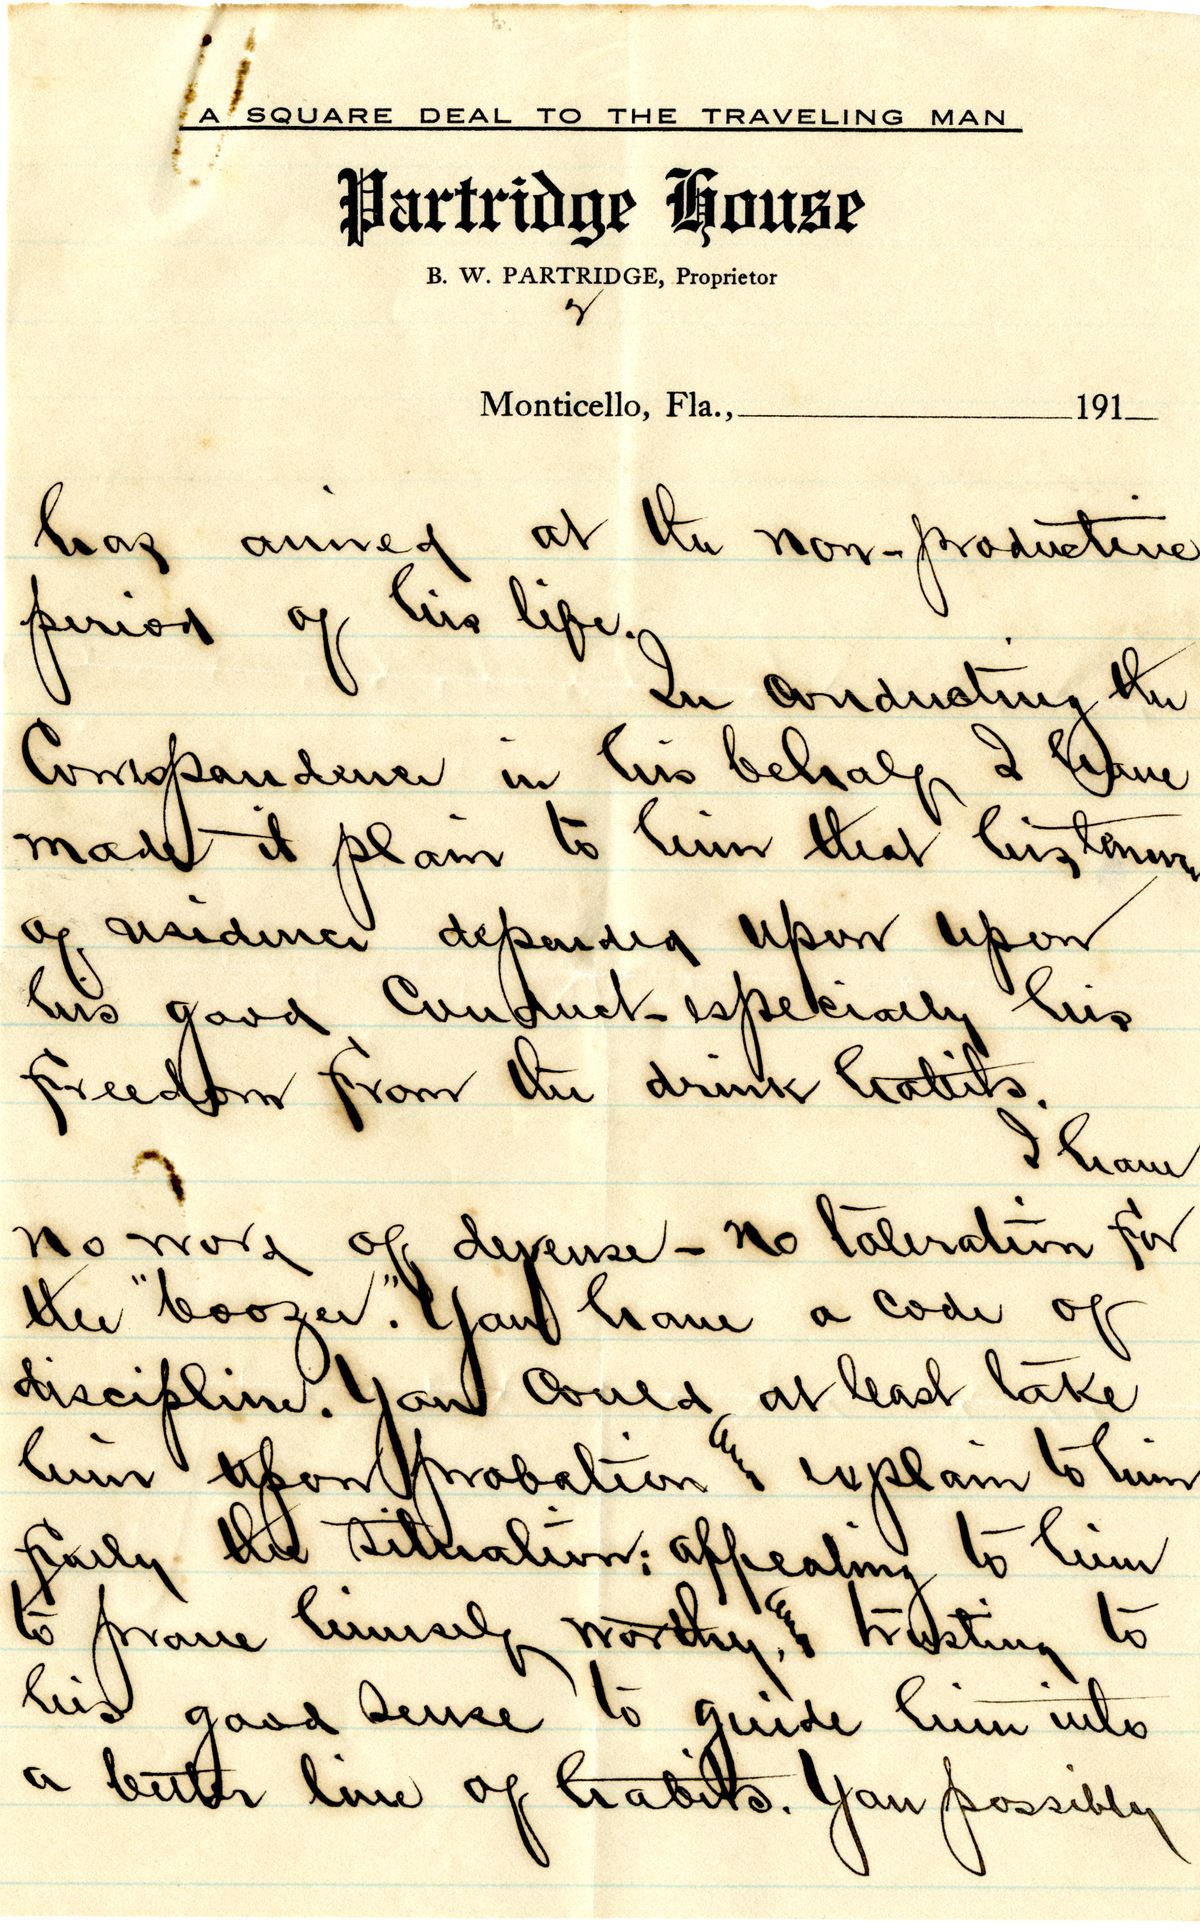 A SQUARE DEAL TO THE TRAVELING MAN
Partridge House
B. W. PARTRIDGE, Proprietor
2
Monticello, Fla., 191
has arrived at the non-productive
period of his life.
In conducting the
Correspondence in his behalf I have
made it plain to him that his tenure
of residence depended upon upon
his good Conduct - especially his
freedom from the drink habits.
I have
no word of defense - no toleration for
the "boozer". You have a code of
discipline. You could at least take
him upon probation & explain to him
fully the situation; appealing to him
to prove himself worthy, & trusting to
his good sense to guide him into
a better line of habits. You possibly